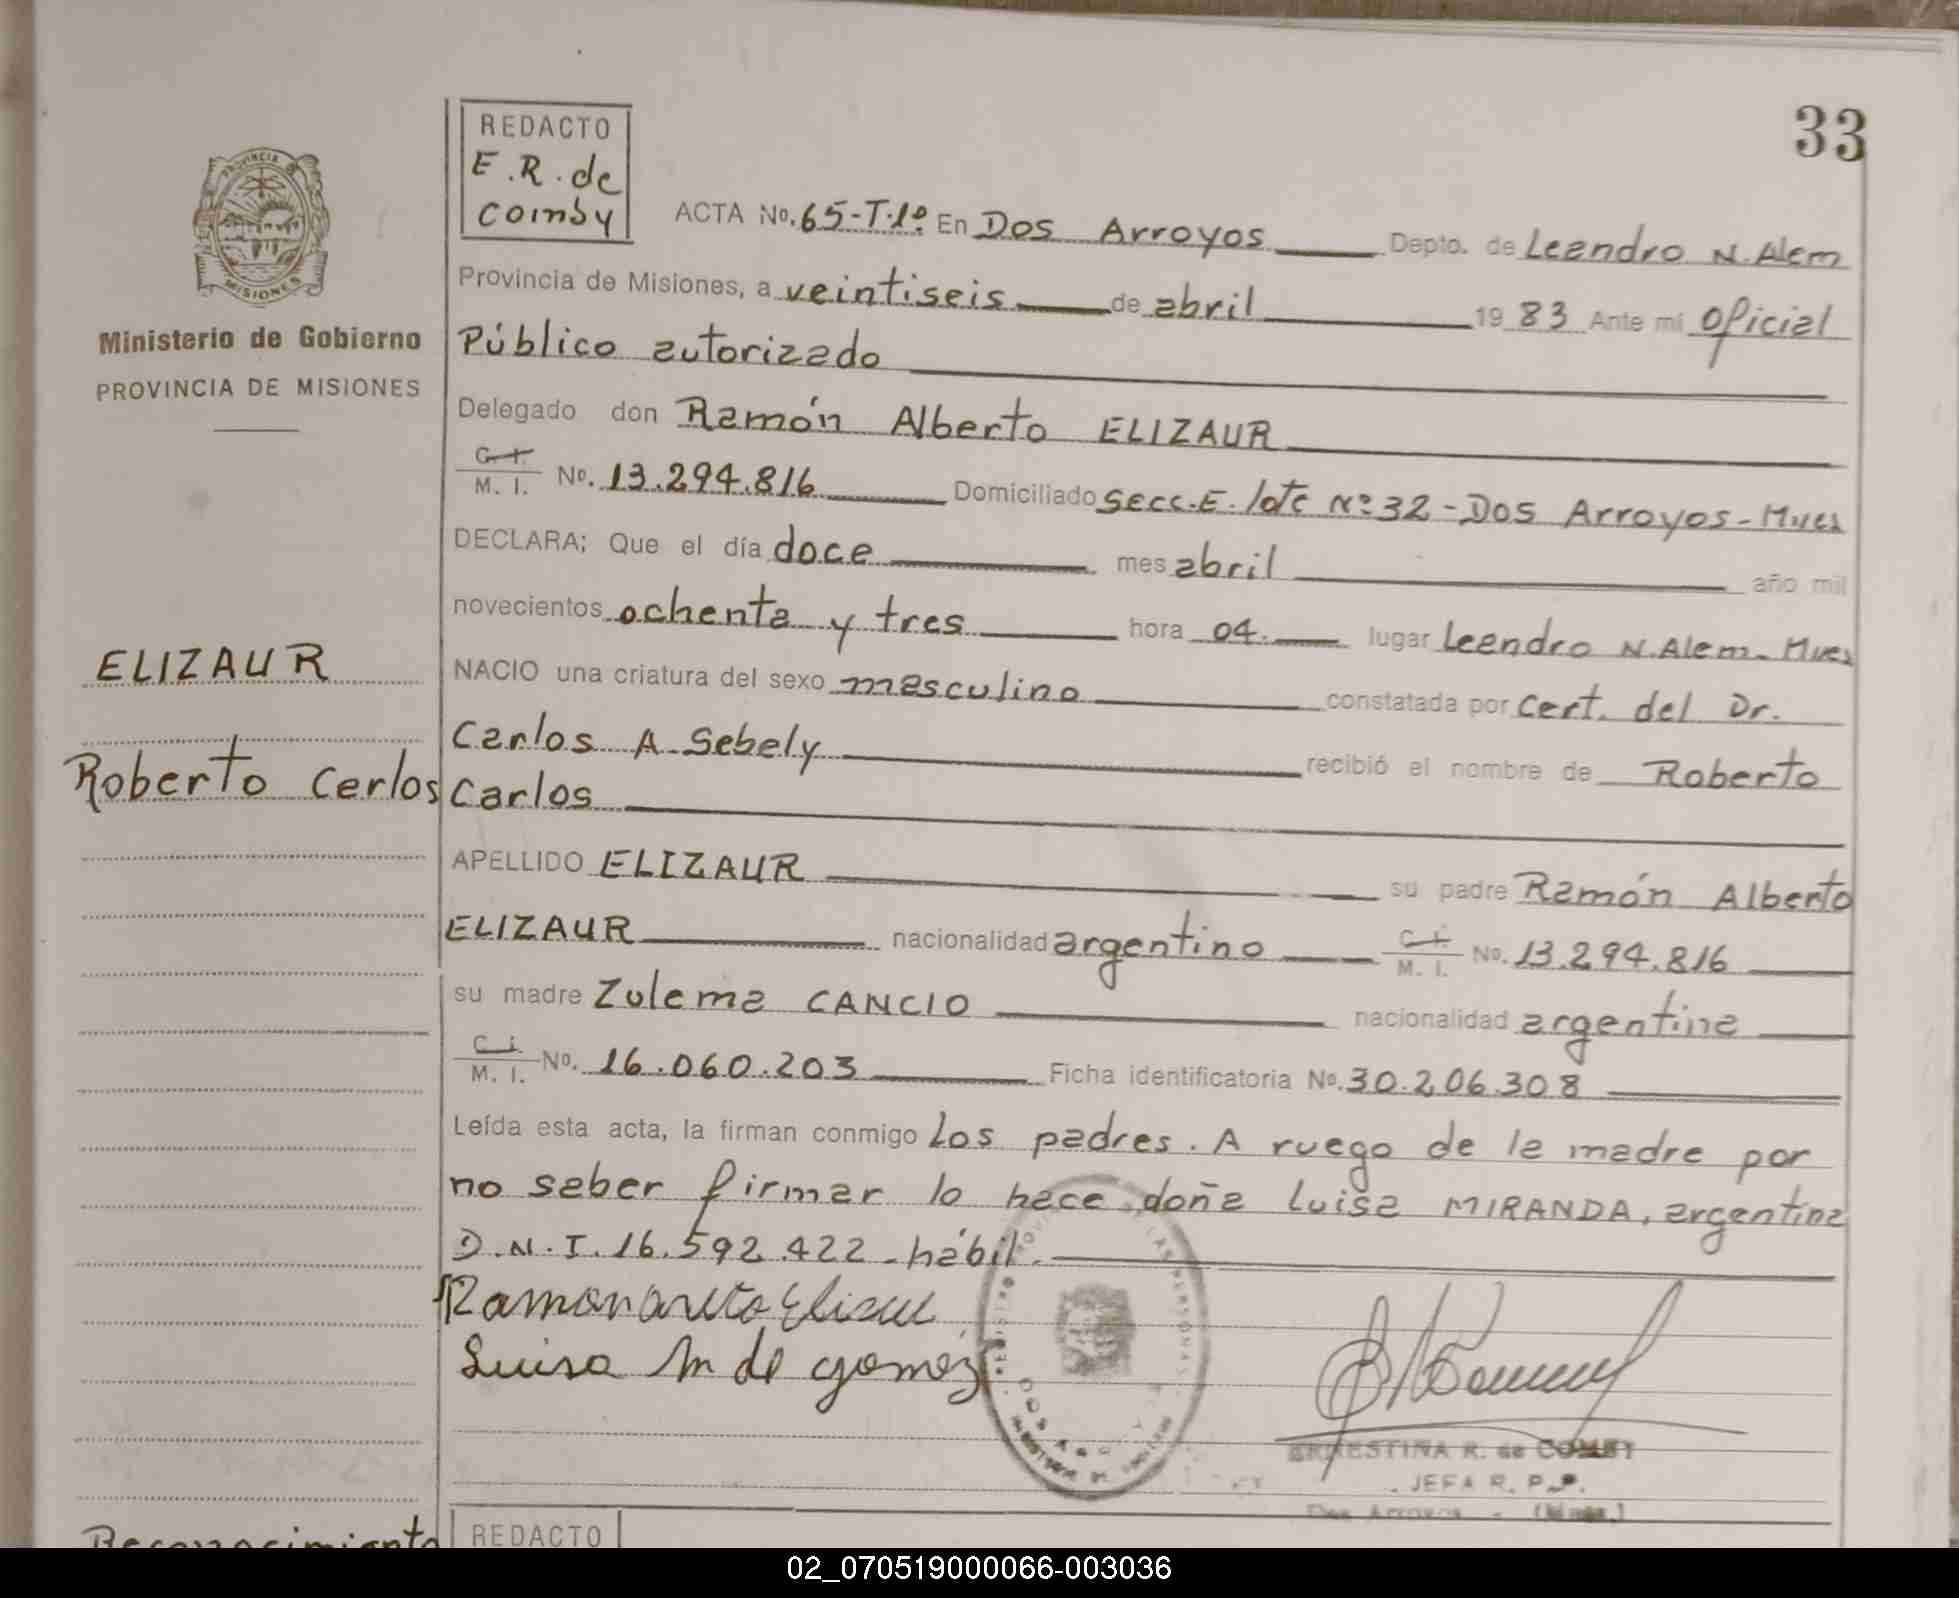 33
REDACTO
E.R. de
Comby
PROVINCIA
MISIONES
Ministerio de Gobierno
PROVINCIA DE MISIONES
ACTA No. 65-T.1º. En Dos Arroyos Depto. de Leandro N. Alem
Provincia de Misiones, a veintiseis de abril 1983 Ante mí Oficial
Público autorizado
Delegado don Ramón Alberto ELIZAUR
C. I. / M. I. No. 13.294.816 Domiciliado Secc.E. lote Nº 32 - Dos Arroyos - Mnes
DECLARA; Que el día doce mes abril año mil
novecientos ochenta y tres hora 04. lugar Leandro N. Alem - Mnes
NACIO una criatura del sexo masculino constatada por Cert. del Dr.
Carlos A. Sebely recibió el nombre de Roberto
Carlos
ELIZAUR
Roberto Carlos
APELLIDO ELIZAUR su padre Ramón Alberto
ELIZAUR nacionalidad argentino C. I. / M. I. No. 13.294.816
su madre Zulema CANCIO nacionalidad argentina
C. I. / M. I. No. 16.060.203 Ficha identificatoria No. 30.206.308
Leída esta acta, la firman conmigo los padres. A ruego de la madre por
no saber firmar lo hace doña Luisa MIRANDA, argentina
D.N.I. 16.592.422 - hábil.
Luisa M de Gomez
ERNESTINA R. de COMBY
JEFA R. P. P.
Dos Arroyos - (Mnes.)
Reconocimiento
REDACTO
02_070519000066-003036